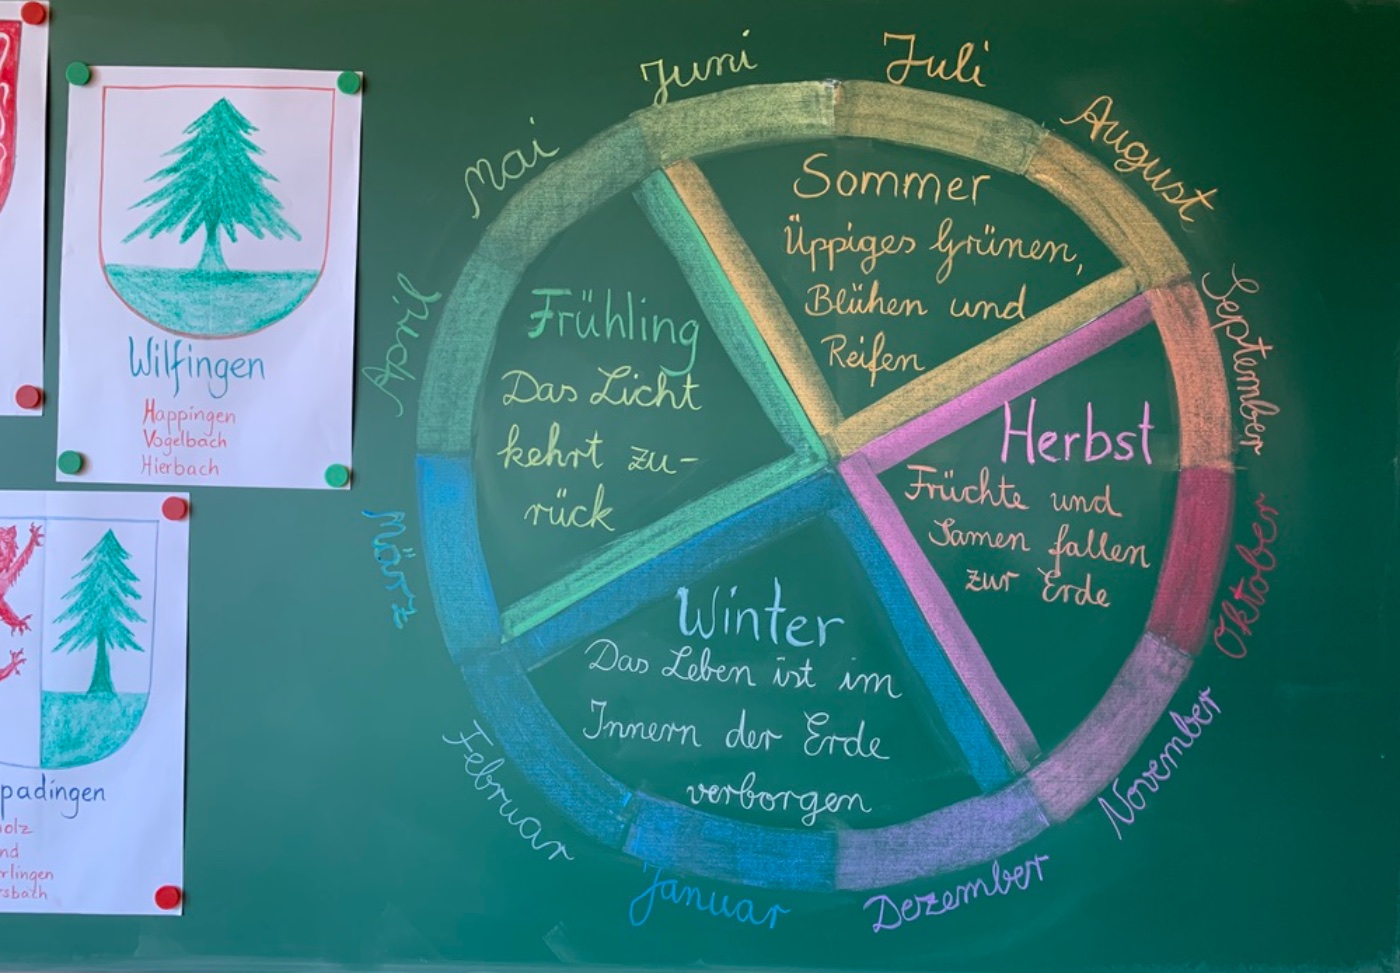 Wilfingen
Happingen
Vogelbach
Hierbach
padingen
olz
nd
rlingen
sbach
Juni
Juli
Mai
August
April
September
März
Oktober
Februar
November
Januar
Dezember
Sommer
Üppiges Grünen,
Blühen und
Reifen
Frühling
Das Licht
kehrt zu-
rück
Herbst
Früchte und
Samen fallen
zur Erde
Winter
Das Leben ist im
Innern der Erde
verborgen